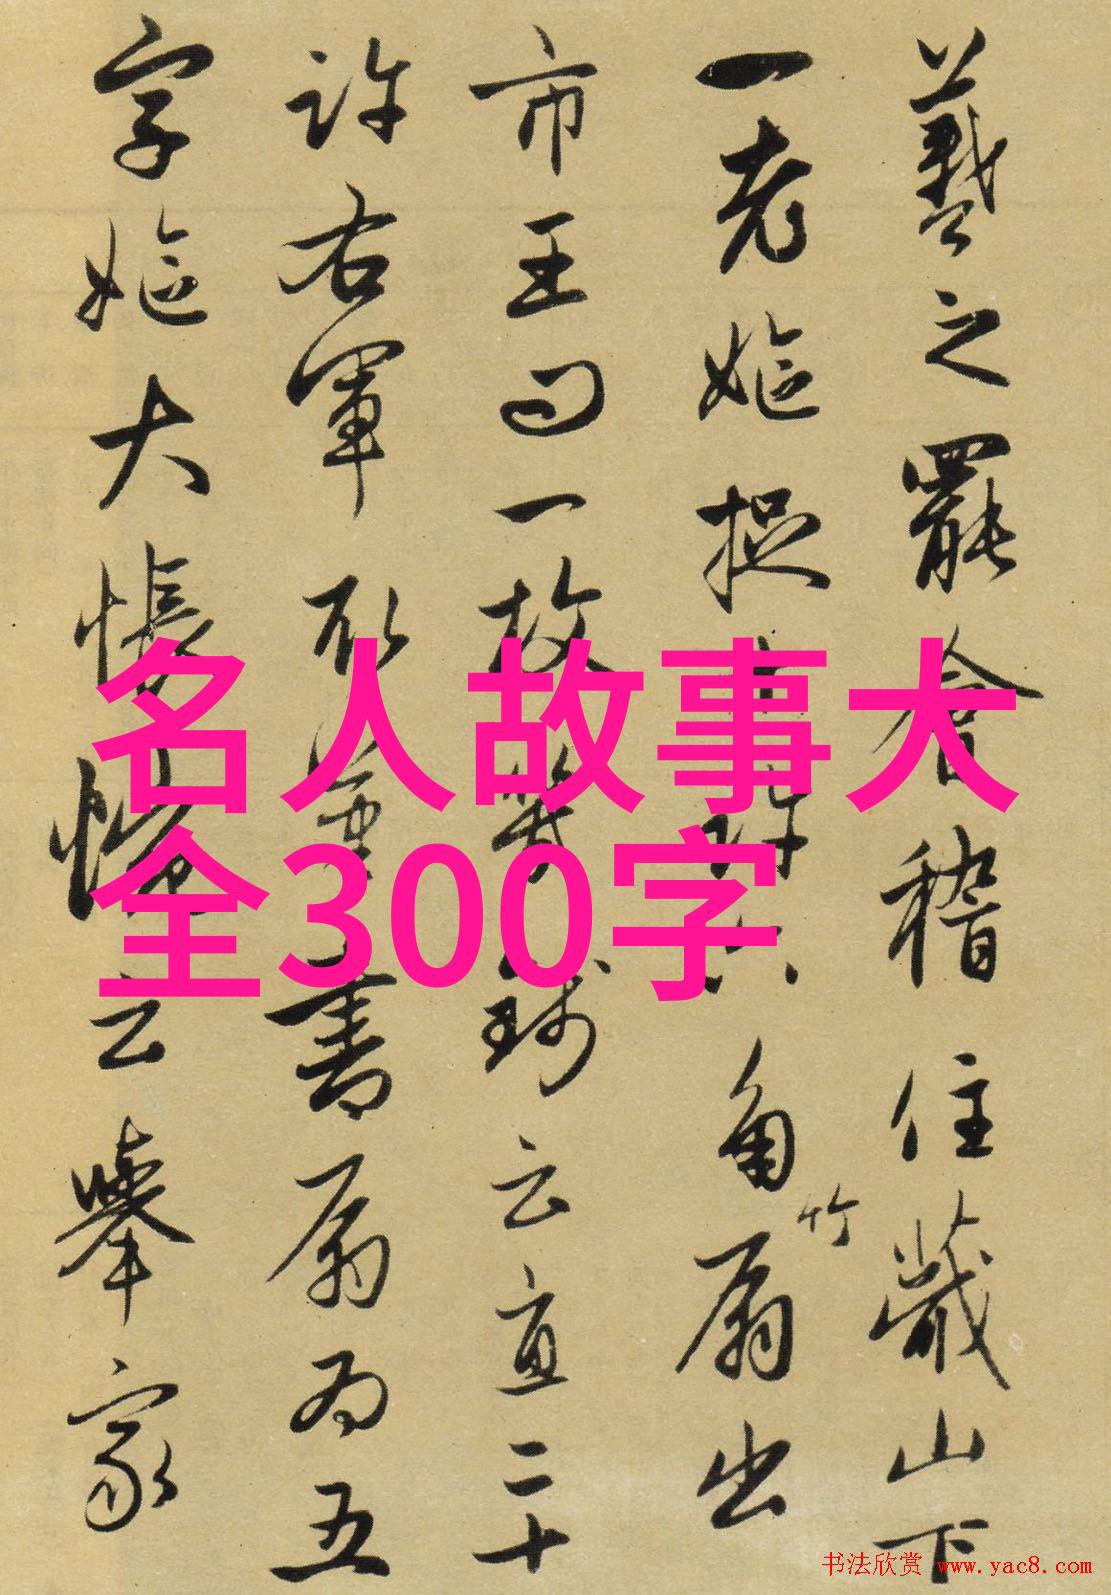 羲之罷會稽住蕺山下
一老嫗捉十許六角竹扇出
市王問一枚幾錢云直二十
許右軍取筆書扇為五
字嫗大悵惋云舉家
名人故事大
全300字
书法欣赏 www.yac8.com